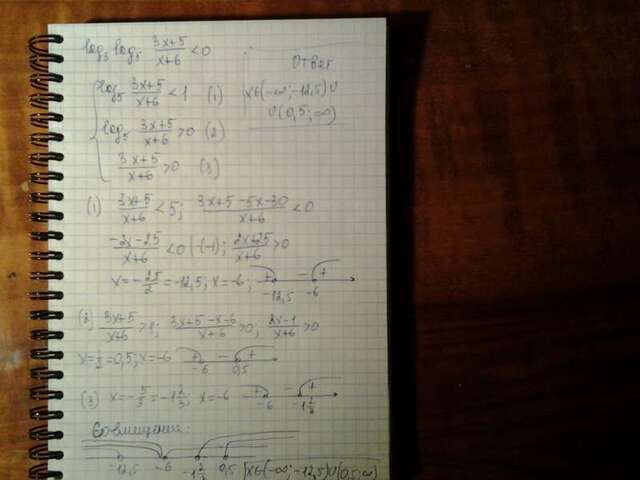 log₃ log₅ (3x+5)/(x+6) < 0
Ответ
log₅ (3x+5)/(x+6) < 1 (1)
x∈(-∞; -12,5)∪
∪(0,5; ∞)
log₅ (3x+5)/(x+6) > 0 (2)
(3x+5)/(x+6) > 0 (3)
(1) (3x+5)/(x+6) < 5; (3x+5-5x-30)/(x+6) < 0
(-2x-25)/(x+6) < 0 | ·(-1); (2x+25)/(x+6) > 0
x = -25/2 = -12,5; x = -6; + - +
-12,5 -6
(2) (3x+5)/(x+6) > 1; (3x+5-x-6)/(x+6) > 0; (2x-1)/(x+6) > 0
x = 1/2 = 0,5; x = -6 + - +
-6 0,5
(3) x = -5/3 = -1 2/3; x = -6 + - +
-6 -1 2/3
Совмещение:
-12,5 -6 -1 2/3 0,5 x∈(-∞; -12,5)∪(0,5; ∞)